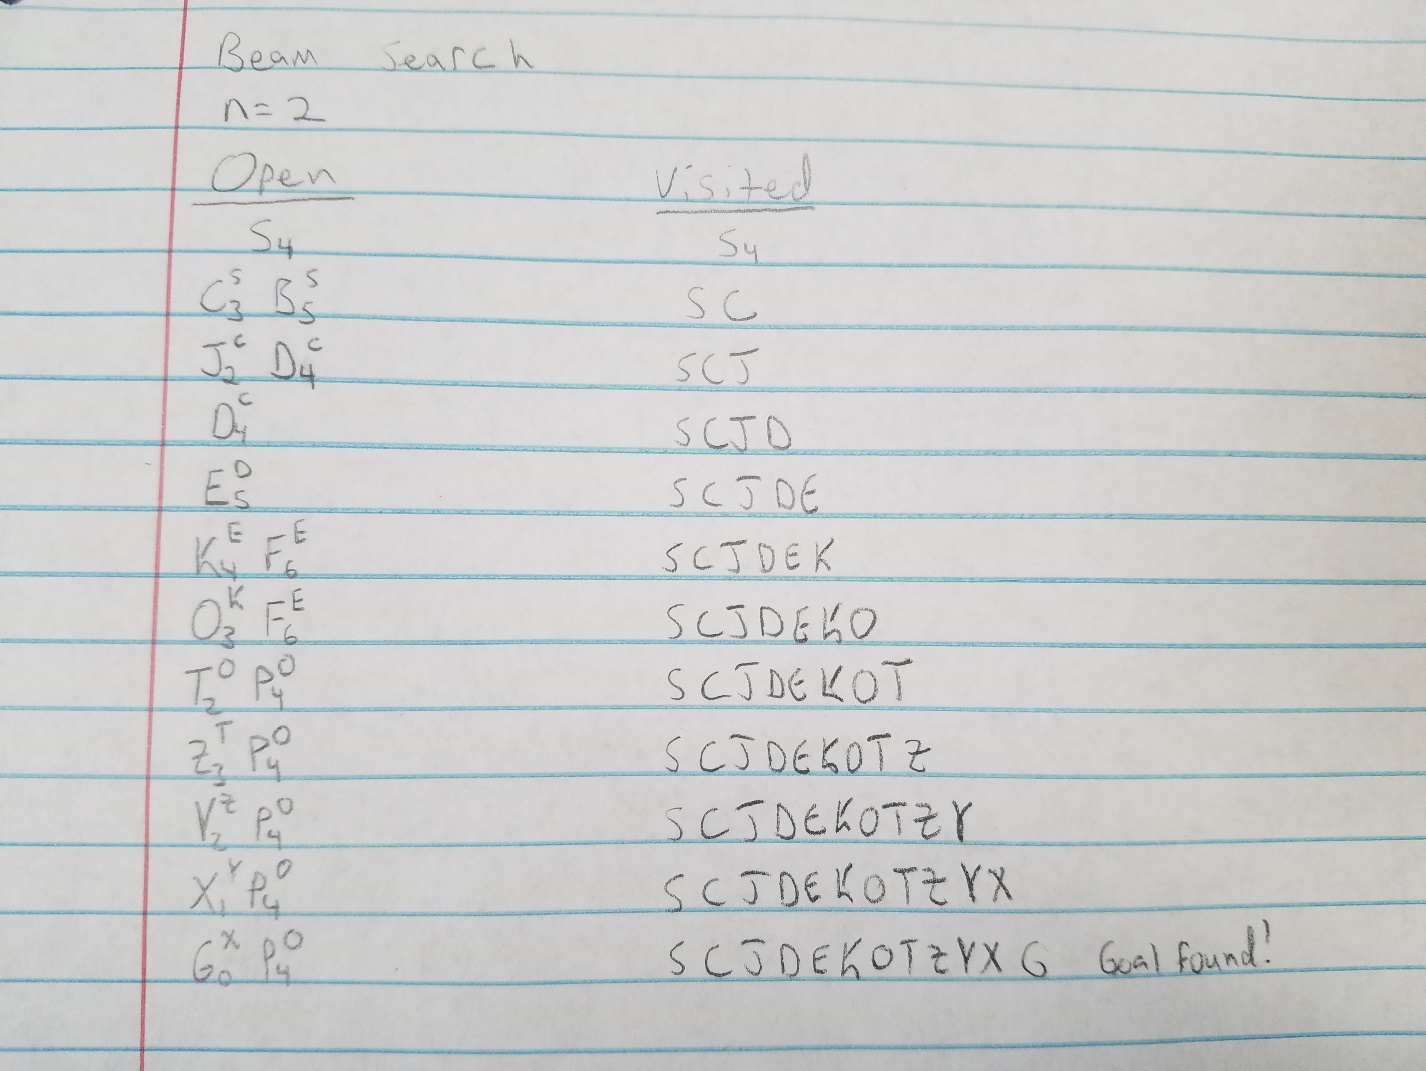 Beam Search
n=2
Open Visited
S₄ S₄
C₃ˢ B₅ˢ SC
J₂ᶜ D₄ᶜ SCJ
D₄ᶜ SCJD
E₅ᴰ SCJDE
K₄ᴱ F₆ᴱ SCJDEK
O₃ᴷ F₆ᴱ SCJDEKO
T₂ᴼ P₄ᴼ SCJDEKOT
Z₃ᵀ P₄ᴼ SCJDEKOTZ
Y₂ᶻ P₄ᴼ SCJDEKOTZY
X₁ʸ P₄ᴼ SCJDEKOTZYX
G₀ˣ P₄ᴼ SCJDEKOTZYXG Goal found!